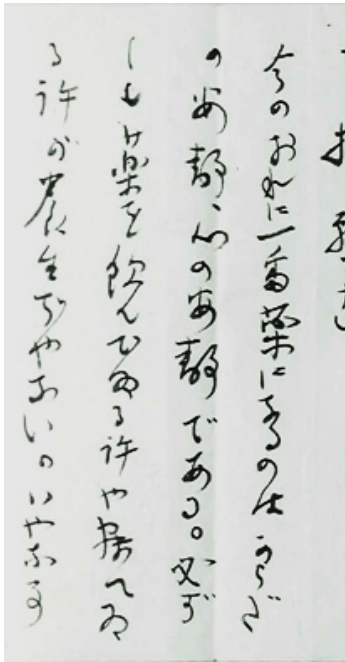 今のおれに一番薬になるのはからだ
の安静、心の安静である。必ず
しも薬を飲んでゐる許や寐てゐ
る許が養生ぢやない。いやな事